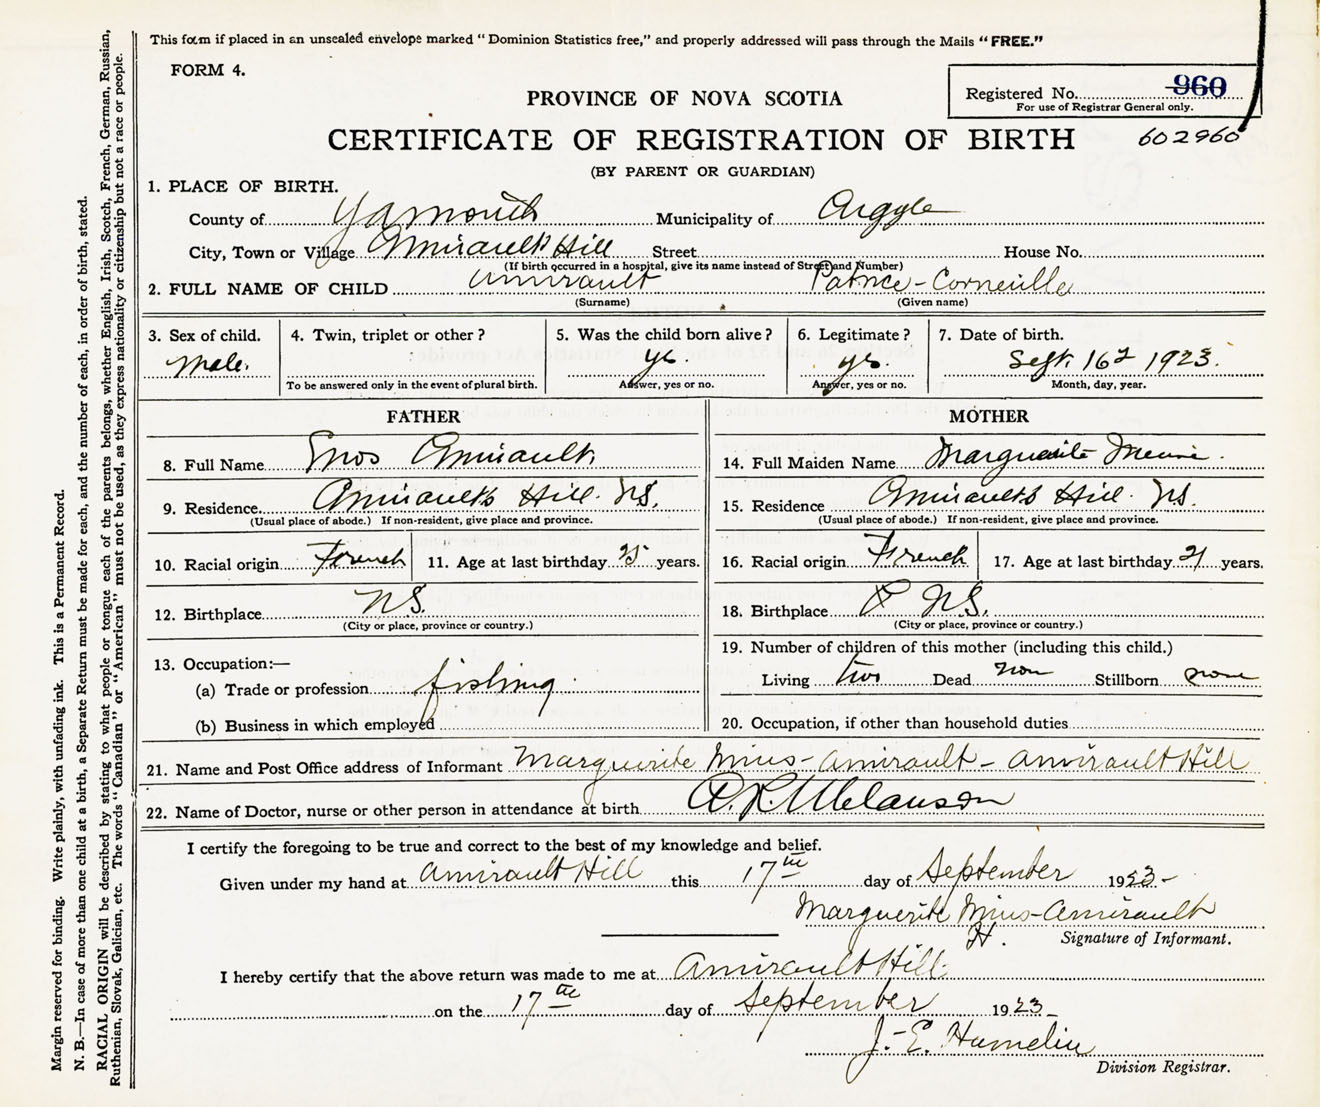 This form if placed in an unsealed envelope marked "Dominion Statistics free," and properly addressed will pass through the Mails "FREE."
FORM 4.
Registered No. 960
For use of Registrar General only.
PROVINCE OF NOVA SCOTIA
CERTIFICATE OF REGISTRATION OF BIRTH 602960
(BY PARENT OR GUARDIAN)
1. PLACE OF BIRTH.
County of Yarmouth Municipality of Argyle
City, Town or Village Amiraults Hill Street House No.
(If birth occurred in a hospital, give its name instead of Street and Number)
2. FULL NAME OF CHILD Amirault Patrice-Corneville
(Surname) (Given name)
3. Sex of child. 4. Twin, triplet or other? 5. Was the child born alive? 6. Legitimate? 7. Date of birth.
Male. yes. yes. Sept. 16 1923.
To be answered only in the event of plural birth. Answer, yes or no. Answer, yes or no. Month, day, year.
FATHER MOTHER
8. Full Name Enos Amirault 14. Full Maiden Name Marguerite
9. Residence Amiraults Hill. N.S. 15. Residence Amiraults Hill. N.S.
(Usual place of abode.) If non-resident, give place and province. (Usual place of abode.) If non-resident, give place and province.
10. Racial origin French 11. Age at last birthday 25 years. 16. Racial origin French 17. Age at last birthday 21 years.
12. Birthplace N.S. 18. Birthplace N.S.
(City or place, province or country.) (City or place, province or country.)
13. Occupation:— 19. Number of children of this mother (including this child.)
(a) Trade or profession fishing. Living two Dead non Stillborn none
(b) Business in which employed 20. Occupation, if other than household duties
21. Name and Post Office address of Informant Marguerite Mius-Amirault - Amirault Hill
22. Name of Doctor, nurse or other person in attendance at birth
I certify the foregoing to be true and correct to the best of my knowledge and belief.
Given under my hand at Amirault Hill this 17th day of September 1923-
Marguerite Mius-Amirault
H. Signature of Informant.
I hereby certify that the above return was made to me at Amirault Hill
on the 17th day of September 1923-
J.-E. Hamelin
Division Registrar.
Margin reserved for binding. Write plainly, with unfading ink. This is a Permanent Record.
N. B.—In case of more than one child at a birth, a Separate Return must be made for each, and the number of each, in order of birth, stated.
RACIAL ORIGIN will be described by stating to what people or tongue each of the parents belongs, whether English, Irish, Scotch, French, German, Russian,
Ruthenian, Slovak, Galician, etc. The words "Canadian" or "American" must not be used, as they express nationality or citizenship but not a race or people.